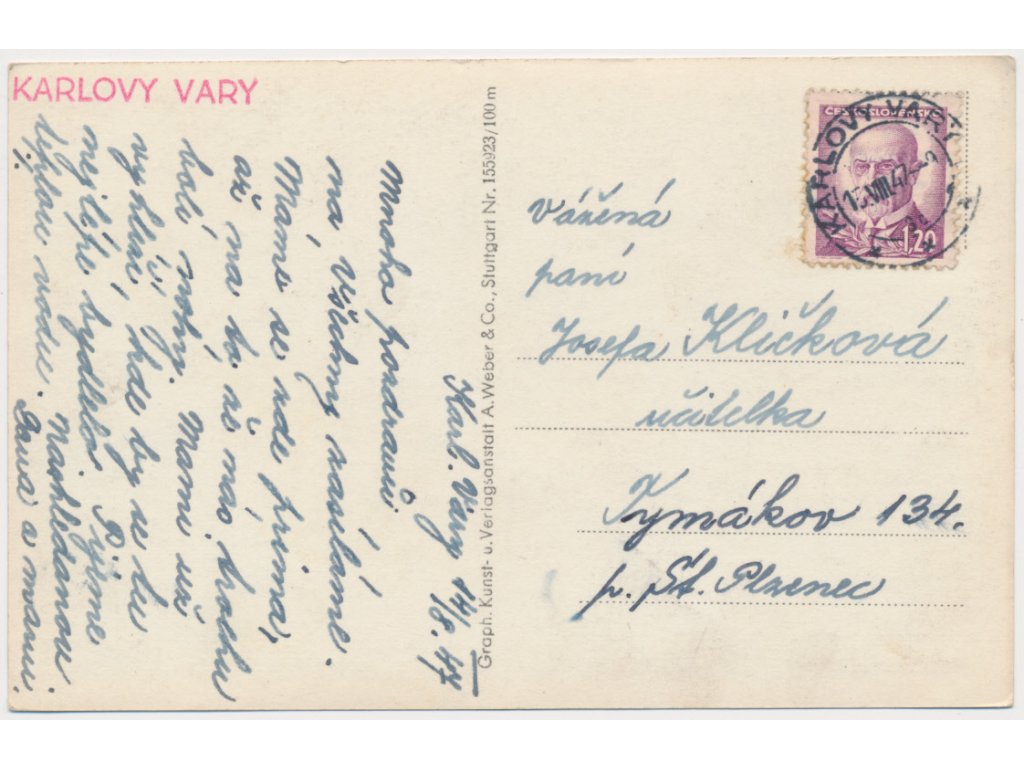 KARLOVY VARY
Karl. Vary 14/8. 47
Mnoho pozdravů
na Všechny zasíláme.
Máme se zde prima,
až na to, že nás trochu
bolí nohy. Mamu už
vyhlíží, kde by se tu
nejlépe bydlelo. Pijeme
teplou vodu. Nashledanou
Dana a mami.
Graph. Kunst- u. Verlagsanstalt A. Weber & Co., Stuttgart Nr. 155923/100 m
ČESKOSLOVENSKO
1,20
KARLOVY VARY
15.VIII.47
Vážená
paní
Josefa Kličková
učitelka
Tymákov 134.
p. Št. Plzenec